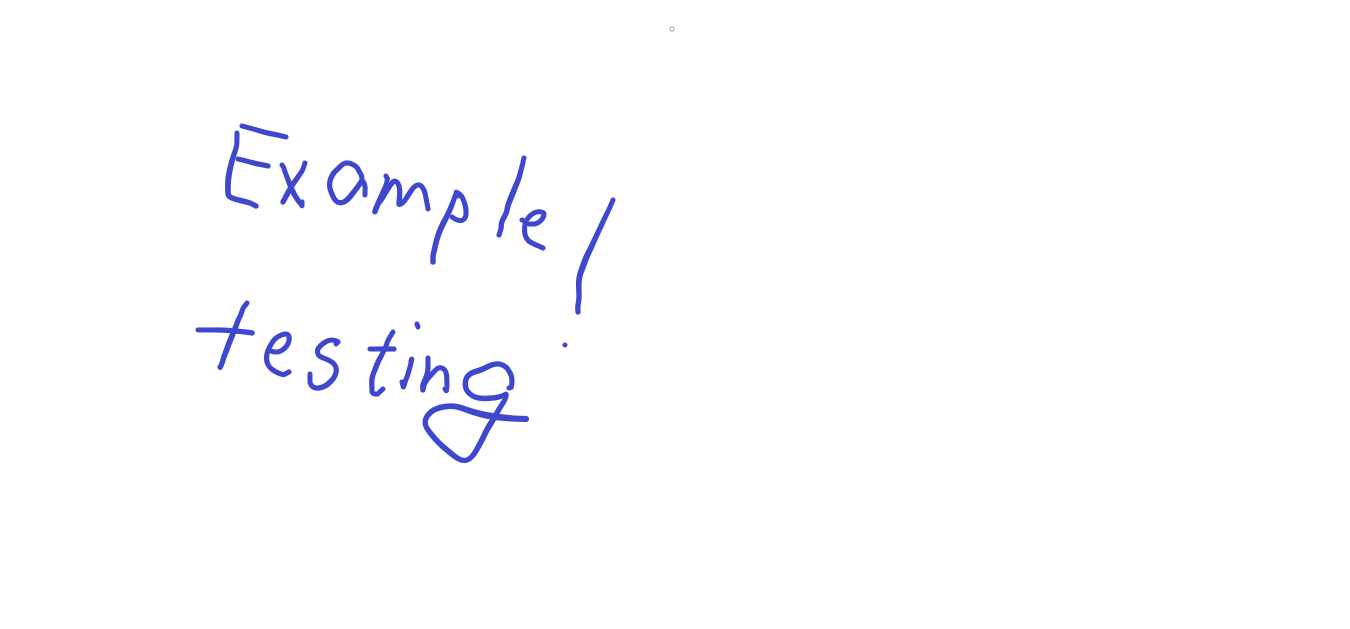 Example!
testing